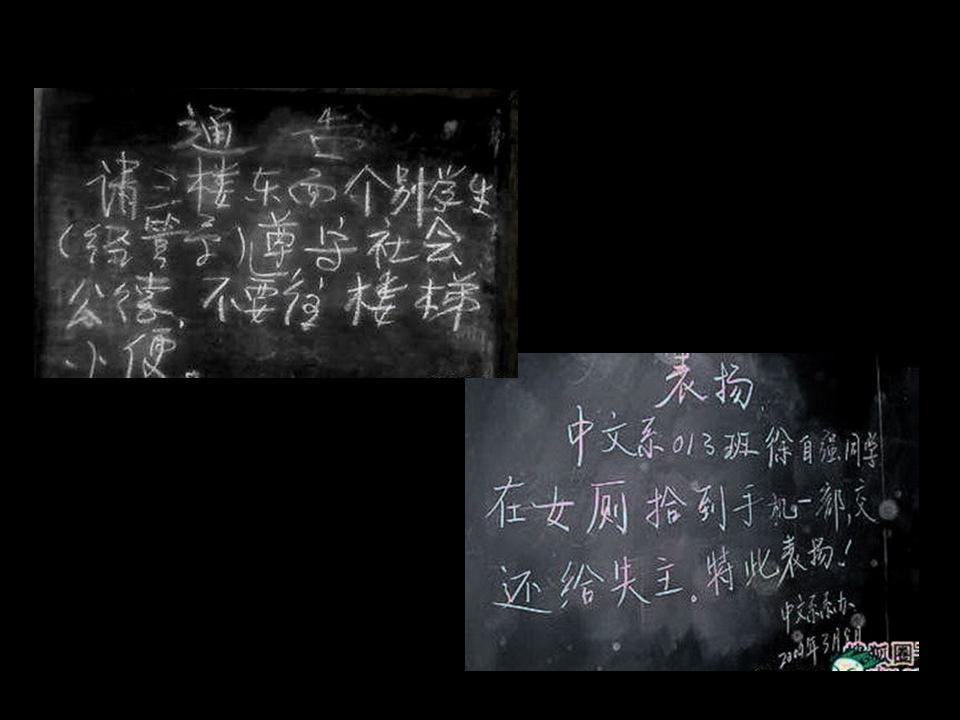 通告
请三楼东面个别学生
(经管系)遵守社会
公德,不要往楼梯
小便
表扬
中文系013班徐自强同学
在女厕拾到手机一部,交
还给失主。特此表扬!
中文系系办
年3月8日